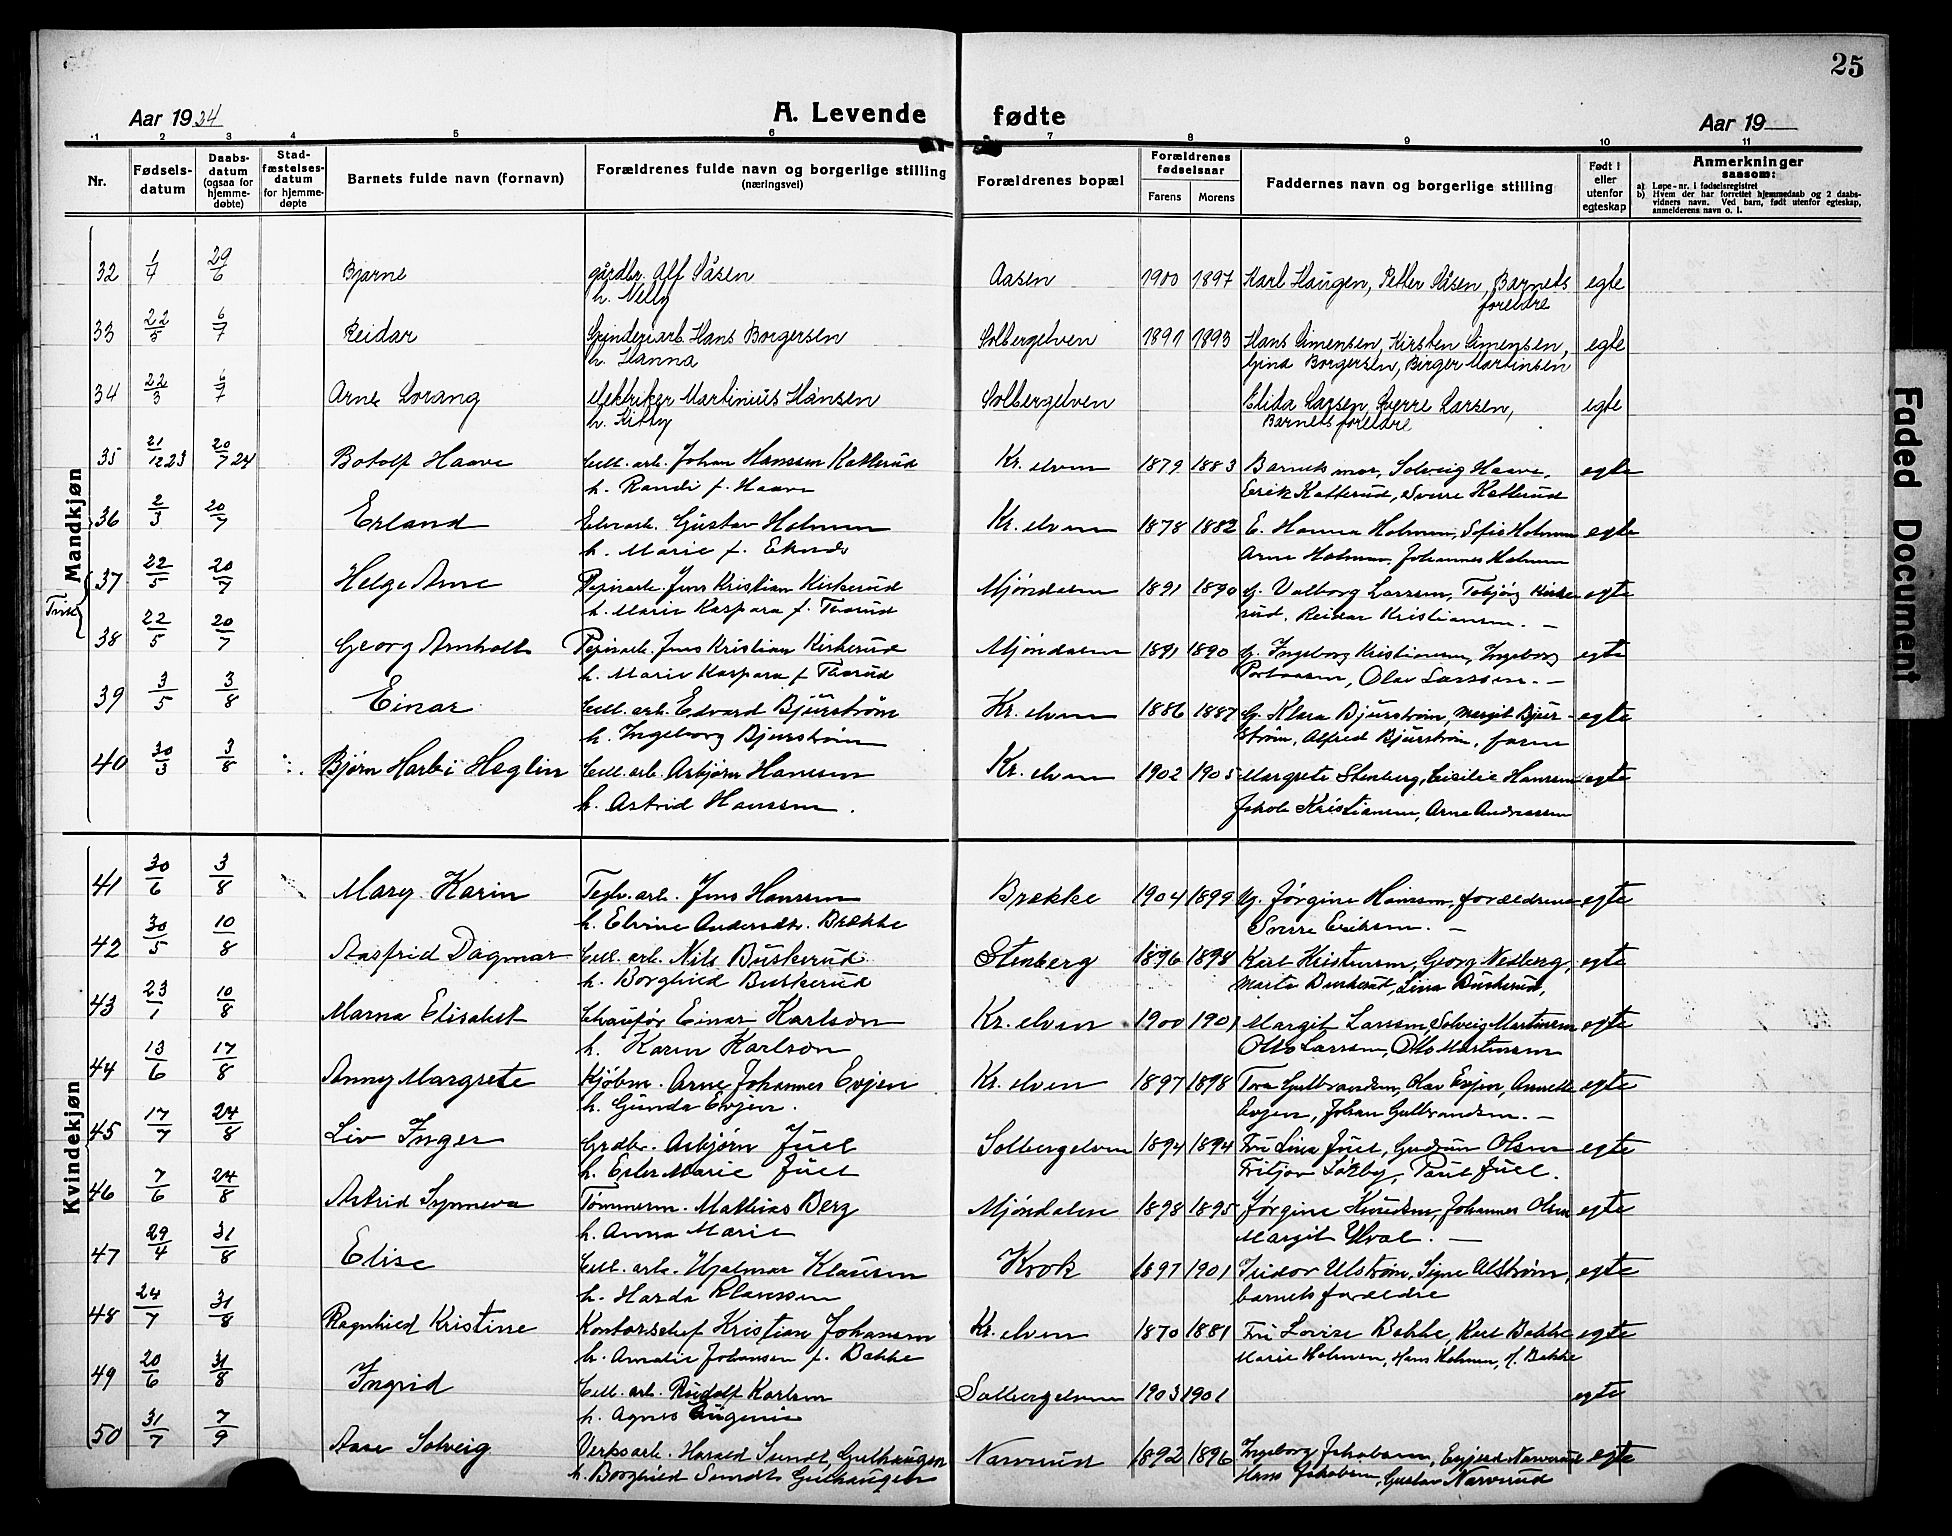 25
Aar 1924 A. Levende fødte Aar 19
1 2 3 4 5 6 7 8 9 10 11
Nr. Fødsels-datum Daabs-datum (ogsaa for hjemme-døbte) Stad-fæstelses-datum for hjemme-døpte Barnets fulde navn (fornavn) Forældrenes fulde navn og borgerlige stilling (næringsvei) Forældrenes bopæl Forældrenes fødselsaar Farens Morens Faddernes navn og borgerlige stilling Født i eller utenfor egteskap Anmerkninger saasom:
a) Løpe-nr. i fødselsregistret
b) Hvem der har forrettet hjemmedaab og 2 daabs-vidners navn. Ved barn, født utenfor egteskap, anmelderens navn o. l.
Mandkjøn
32 1/4 29/6 Bjarne gårdbr. Alf Åsen Aasen 1900 1897 Karl Haugen, Petter Åsen, Barnets egte
h. Nelly foreldre
33 22/5 6/7 Reidar Spinderiarb. Hans Borgersen Solbergelven 1891 1893 Hans Simensen, Kirsten Simensen, egte
h. Hanna Borgersen, Birger Martinsen
34 22/3 6/7 Arne Lorang elektriker Martinius Hansen Solbergelven Elida Larsen, Sverre Larsen, egte
h. Kitty Barnets foreldre
35 21/12 23 20/7 24 Botolf Haave Cell. arb. Johan Hanssen Katterud Kr. elven 1879 1883 Barnets mor, Solveig Haave, egte
h. Randi f. Haave Erik Katterud, Sverre Katterud
36 2/3 20/7 Erland Elvearb. Gustav Holmen Kr. elven 1878 1882 E. Hanna Holmen, Sofie Holmen egte
h. Marie f. Arne Holmen, Johannes Holmen
Tvill.
37 22/5 20/7 Helge Arne Papirarb. Jens Kristian Kirkerud Mjøndalen 1891 1890 G. Valborg Larssen, Tobjørg Kirke- egte
h. Marie Kaspara f. Thorud rud, Reidar Kristiansen. —
38 22/5 20/7 Georg Arnholt Papirarb. Jens Kristian Kirkerud Mjøndalen 1891 1890 G. Ingeborg Kristiansen, Ingeborg egte
h. Marie Kaspara f. Thorud Olav Larssen. —
39 3/5 3/8 Einar Cell. arb. Edvard Bjurstrøm Kr. elven 1886 1887 G. Klara Bjurstrøm, Margit Bjur- egte
h. Ingeborg Bjurstrøm strøm, Alfred Bjurstrøm, faren
40 30/3 3/8 Bjørn Harbi Heglin Cell. arb. Asbjørn Hanssen Kr. elven 1902 1905 Margrete Stenberg, Cecilie Hanssen egte
h. Astrid Hanssen. Jakob Kristiansen, Arne Andreassen
Kvindekjøn
41 30/6 3/8 Mary Karin Teglv. arb. Jens Hanssen Brække 1904 1899 G. Jørgine Hanssen, forældrene egte
h. Elvine Andersdtr. Brække Sverre Eriksen. —
42 30/5 10/8 Aasfrid Dagmar Cell. arb. Nils Buskerud Stenberg 1896 1898 Karl Kristensen, Georg Nedberg, egte
h. Borghild Buskerud Marta Buskerud, Lina Buskerud,
43 23/1 10/8 Marna Elisabet Chaufør Einar Karlson Kr. elven 1900 1901 Margit Larssen, Solveig Martinsen egte
h. Karen Karlson Otto Larssen, Otto Martinsen
44 13/6 17/8 Anny Margrete Kjøbm. Arne Johannes Evjen Kr. elven 1897 1898 Tora Gulbrandsen, Olav Evjen, Annette egte
h. Gunda Evjen. Evjen, Johan Gulbrandsen. —
45 17/7 24/8 Liv Inger Grdbr. Asbjørn Juel Solbergelven 1894 1894 Fru Lina Juel, Gudrun Olsen egte
h. Ester Marie Juel Fritjov Paul Juel.
46 7/6 24/8 Astrid Synneva Tømmerm. Mathias Berg Mjøndalen 1898 1895 Jørgine Knudsen, Johannes Olsen egte
h. Anna Marie Margit Hval. —
47 29/4 31/8 Elise Cell. arb. Hjalmar Klausen Krok 1897 1901 Isidor Ulstrøm, Signe Ulstrøm, egte
h. Harda Klaussen barnets forældre
48 24/7 31/8 Ragnhild Kristine Kontorchef Kristian Johansen Kr. elven 1870 1881 Fru Lovise Bakke, Karl Bakke egte
h. Amalie Johansen f. Bakke Marie Holmen, Hans Holmen, H. Bakke
49 20/6 31/8 Ingrid Cell. arb. Rudolf Karlsen Solbergelven 1903 1901 egte
h. Agnes Eugenie
50 31/7 7/9 Aase Solveig Verksarb. Harald Sundt Gulhaugen Narverud 1892 1896 Ingeborg Jakobsen, Narverud egte
h. Borghild Sundt Gulhaugen Hans Jakobsen, Gustav Narverud
Faded Document